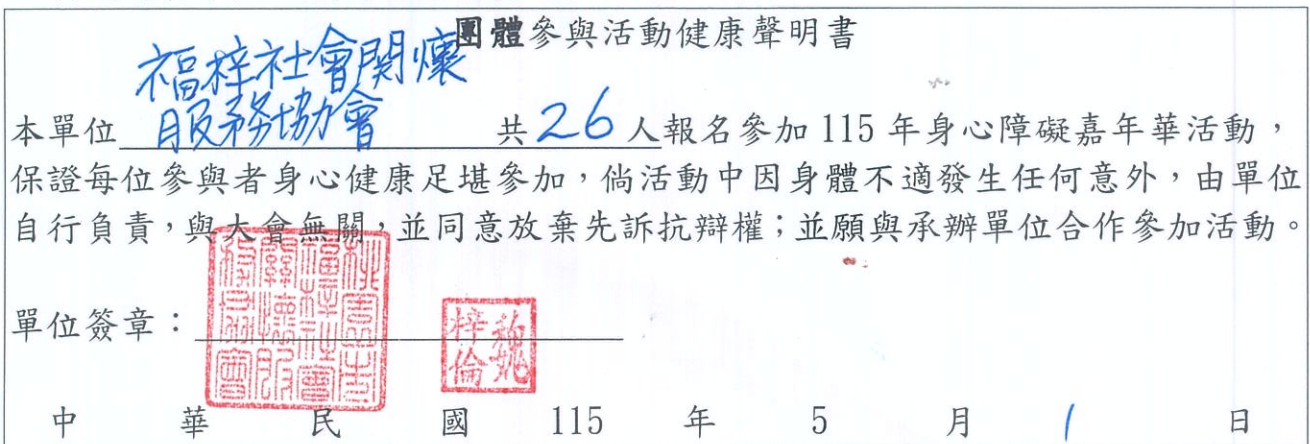 團體參與活動健康聲明書
福梓社會関懷
服務協會
本單位 共26人報名參加115年身心障礙嘉年華活動，
保證每位參與者身心健康足堪參加，倘活動中因身體不適發生任何意外，由單位
自行負責，與大會無關，並同意放棄先訴抗辯權；並願與承辦單位合作參加活動。
桃園市
福梓社會
關懷服
務協會
單位簽章：
梓倫
中 華 民 國 115 年 5 月 1 日